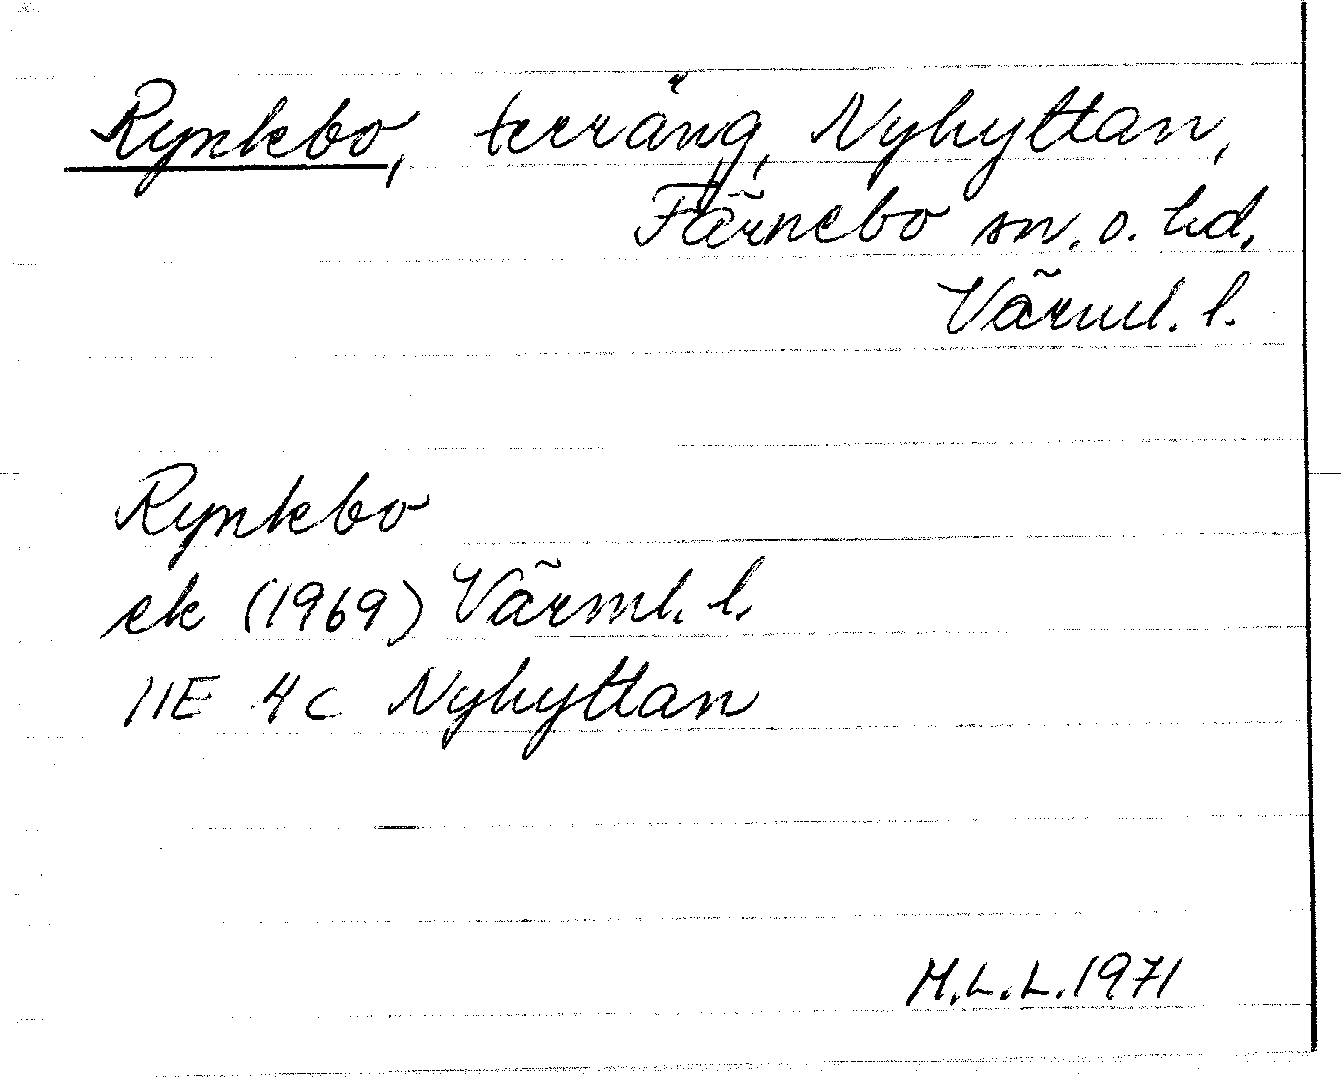 Rynkebo, terräng, Nyhyttan,
Färnebo sn. o. hd.
Värml. l.
Rynkebo
ek (1969) Värml. l.
11E 4c Nyhyttan
M.L.L. 1971